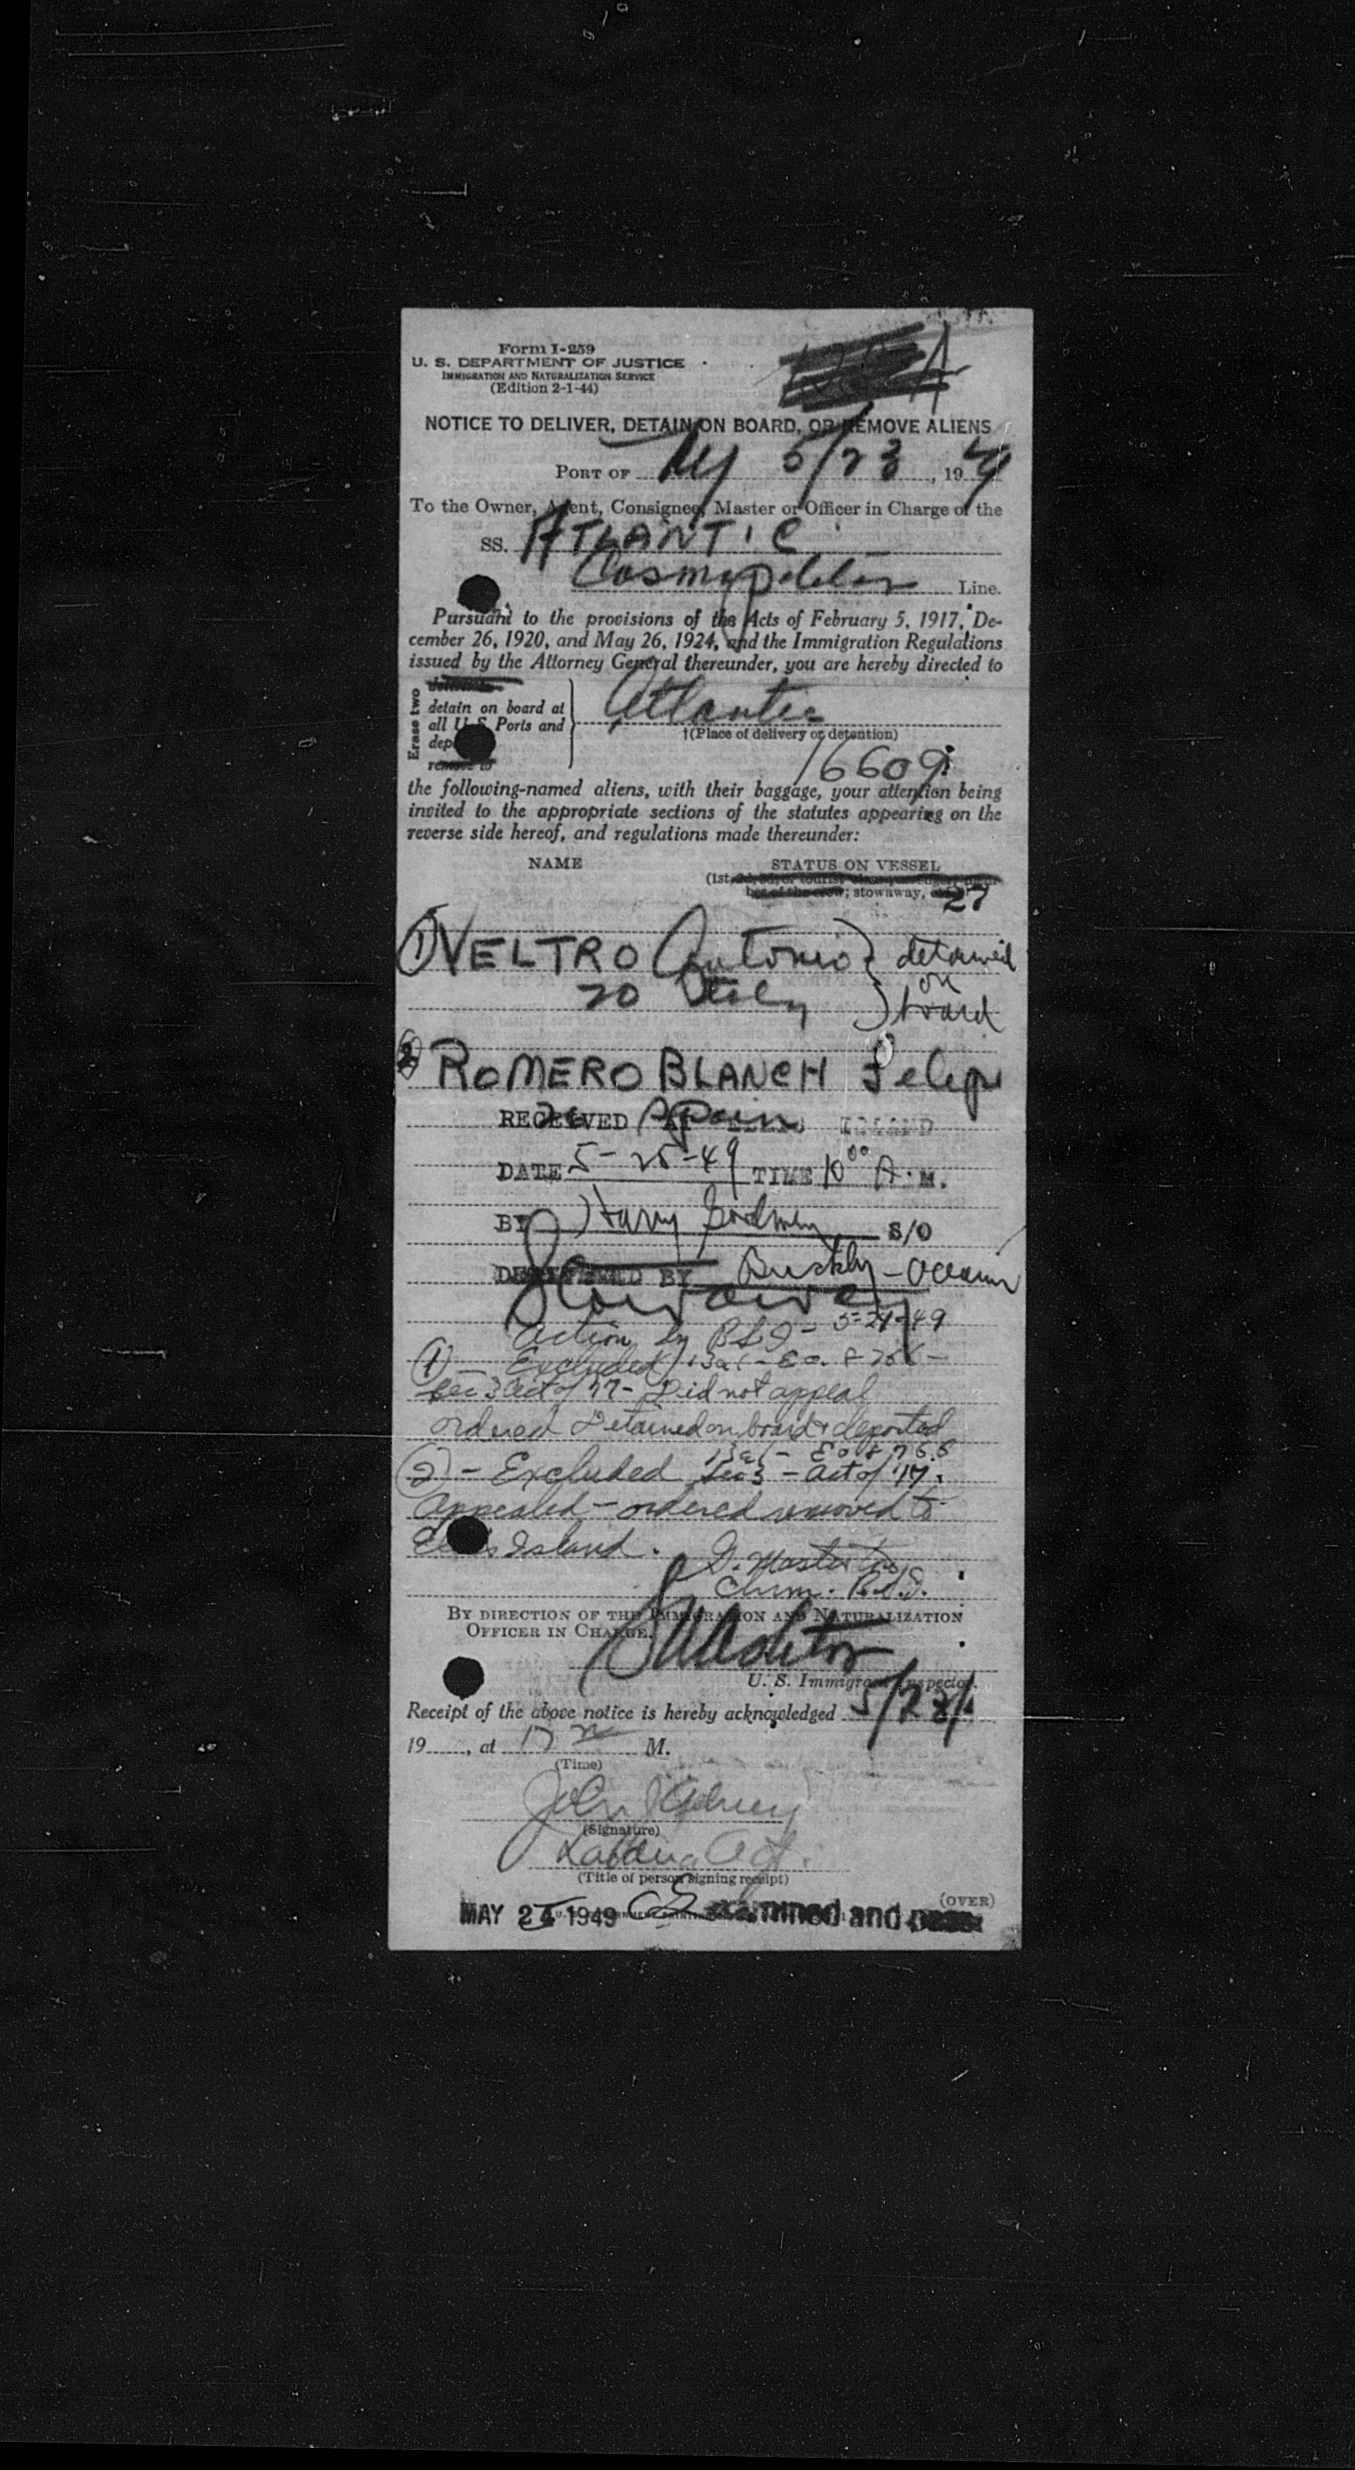 Form I-259
U. S. DEPARTMENT OF JUSTICE
IMMIGRATION AND NATURALIZATION SERVICE
(Edition 2-1-44)
NOTICE TO DELIVER, DETAIN ON BOARD, OR REMOVE ALIENS
PORT OF NY 5/23, 1949
To the Owner, Agent, Consignee, Master or Officer in Charge of the
SS. ATLANTIC
Cosmopolitan Line.
Pursuant to the provisions of the Acts of February 5, 1917, De-
cember 26, 1920, and May 26, 1924, and the Immigration Regulations
issued by the Attorney General thereunder, you are hereby directed to
Erase two
detain on board at
all U S Ports and
dep
remove to
Atlantic
†(Place of delivery or detention)
16609
the following-named aliens, with their baggage, your attention being
invited to the appropriate sections of the statutes appearing on the
reverse side hereof, and regulations made thereunder:
NAME STATUS ON VESSEL
(1st, stowaway,
27
(1) VELTRO Antonio } detained
20 Italy on
board
(2) ROMERO BLANCH Felipe
RECEIVED AT ELLIS ISLAND
26 Spain
DATE 5-25-49 TIME 10 00 A.M.
BY Harry S/O
DELIVERED BY Buckly - Oceanic
Stowaway
Action by BSI - 5-24-49
(1) - Excluded 13a1 - E.O. 8766 -
Sec 3 Act of 17 - Did not appeal
ordered Detained on board & deported
(2) - Excluded 13a1 - E.O. 8766
Sec 3 - Act of '17.
Appealed - ordered removed to
Ellis Island.
Chrm. B.S.I.
BY DIRECTION OF THE IMMIGRATION AND NATURALIZATION
OFFICER IN CHARGE.
U. S. Immigrant Inspector.
Receipt of the above notice is hereby acknowledged 5/23/
19, at 12 n M.
(Time)
John
(Signature)
(Title of person signing receipt)
(OVER)
MAY 24 1949 Examined and